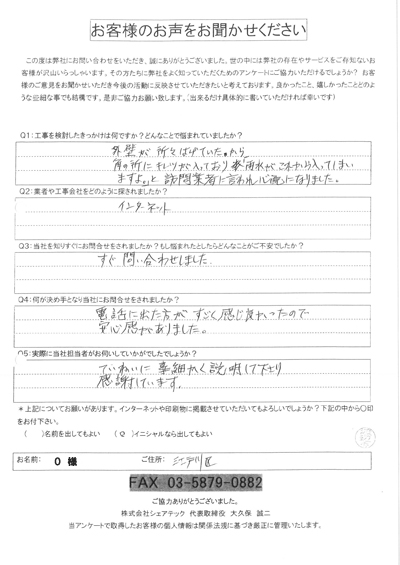 お客様のお声をお聞かせください
この度は弊社にお問い合わせをいただき、誠にありがとうございました。世の中には弊社の存在やサービスをご存知ないお
客様が沢山いらっしゃいます。その方たちに弊社をよく知っていただくためのアンケートにご協力いただけるでしょうか？ お客
様のご意見をお聞かせいただき今後の活動に反映させていただきたいと考えております。良かったこと、嬉しかったことどのよ
うな些細な事でも結構です。是非ご協力お願い致します。（出来るだけ具体的に書いていただければ幸いです）
Q1：工事を検討したきっかけは何ですか？どんなことで悩まれていましたか？
外壁が所々はげていた。から
角の所に が入っており 雨水がこれから入ってしまい
ますよ。と訪問業者に言われ心配になりました。
Q2：業者や工事会社をどのように探されましたか？
インターネット
Q3：当社を知りすぐにお問合せをされましたか？もし悩まれたとしたらどんなことがご不安でしたか？
すぐ問い合わせしました。
Q4：何が決め手となり当社にお問合せをされましたか？
電話に出た方がすごく感じ良かったので
安心感がありました。
Q5：実際に当社担当者がお伺いしていかがでしたでしょうか？
ていねいに事細かく説明して下さり
感謝しています。
＊上記についてお願いがあります。インターネットや印刷物に掲載させていただいてもよろしいでしょうか？下記の中から○印
をお付下さい。
（ ）名前を出してもよい （○）イニシャルなら出してもよい
お名前： O 様 ご住所： 江戸川区
FAX 03-5879-0882
ご協力ありがとうございました。
株式会社シェアテック 代表取締役 大久保 誠二
当アンケートで取得したお客様の個人情報は関係法規に基づき厳正に管理いたします。